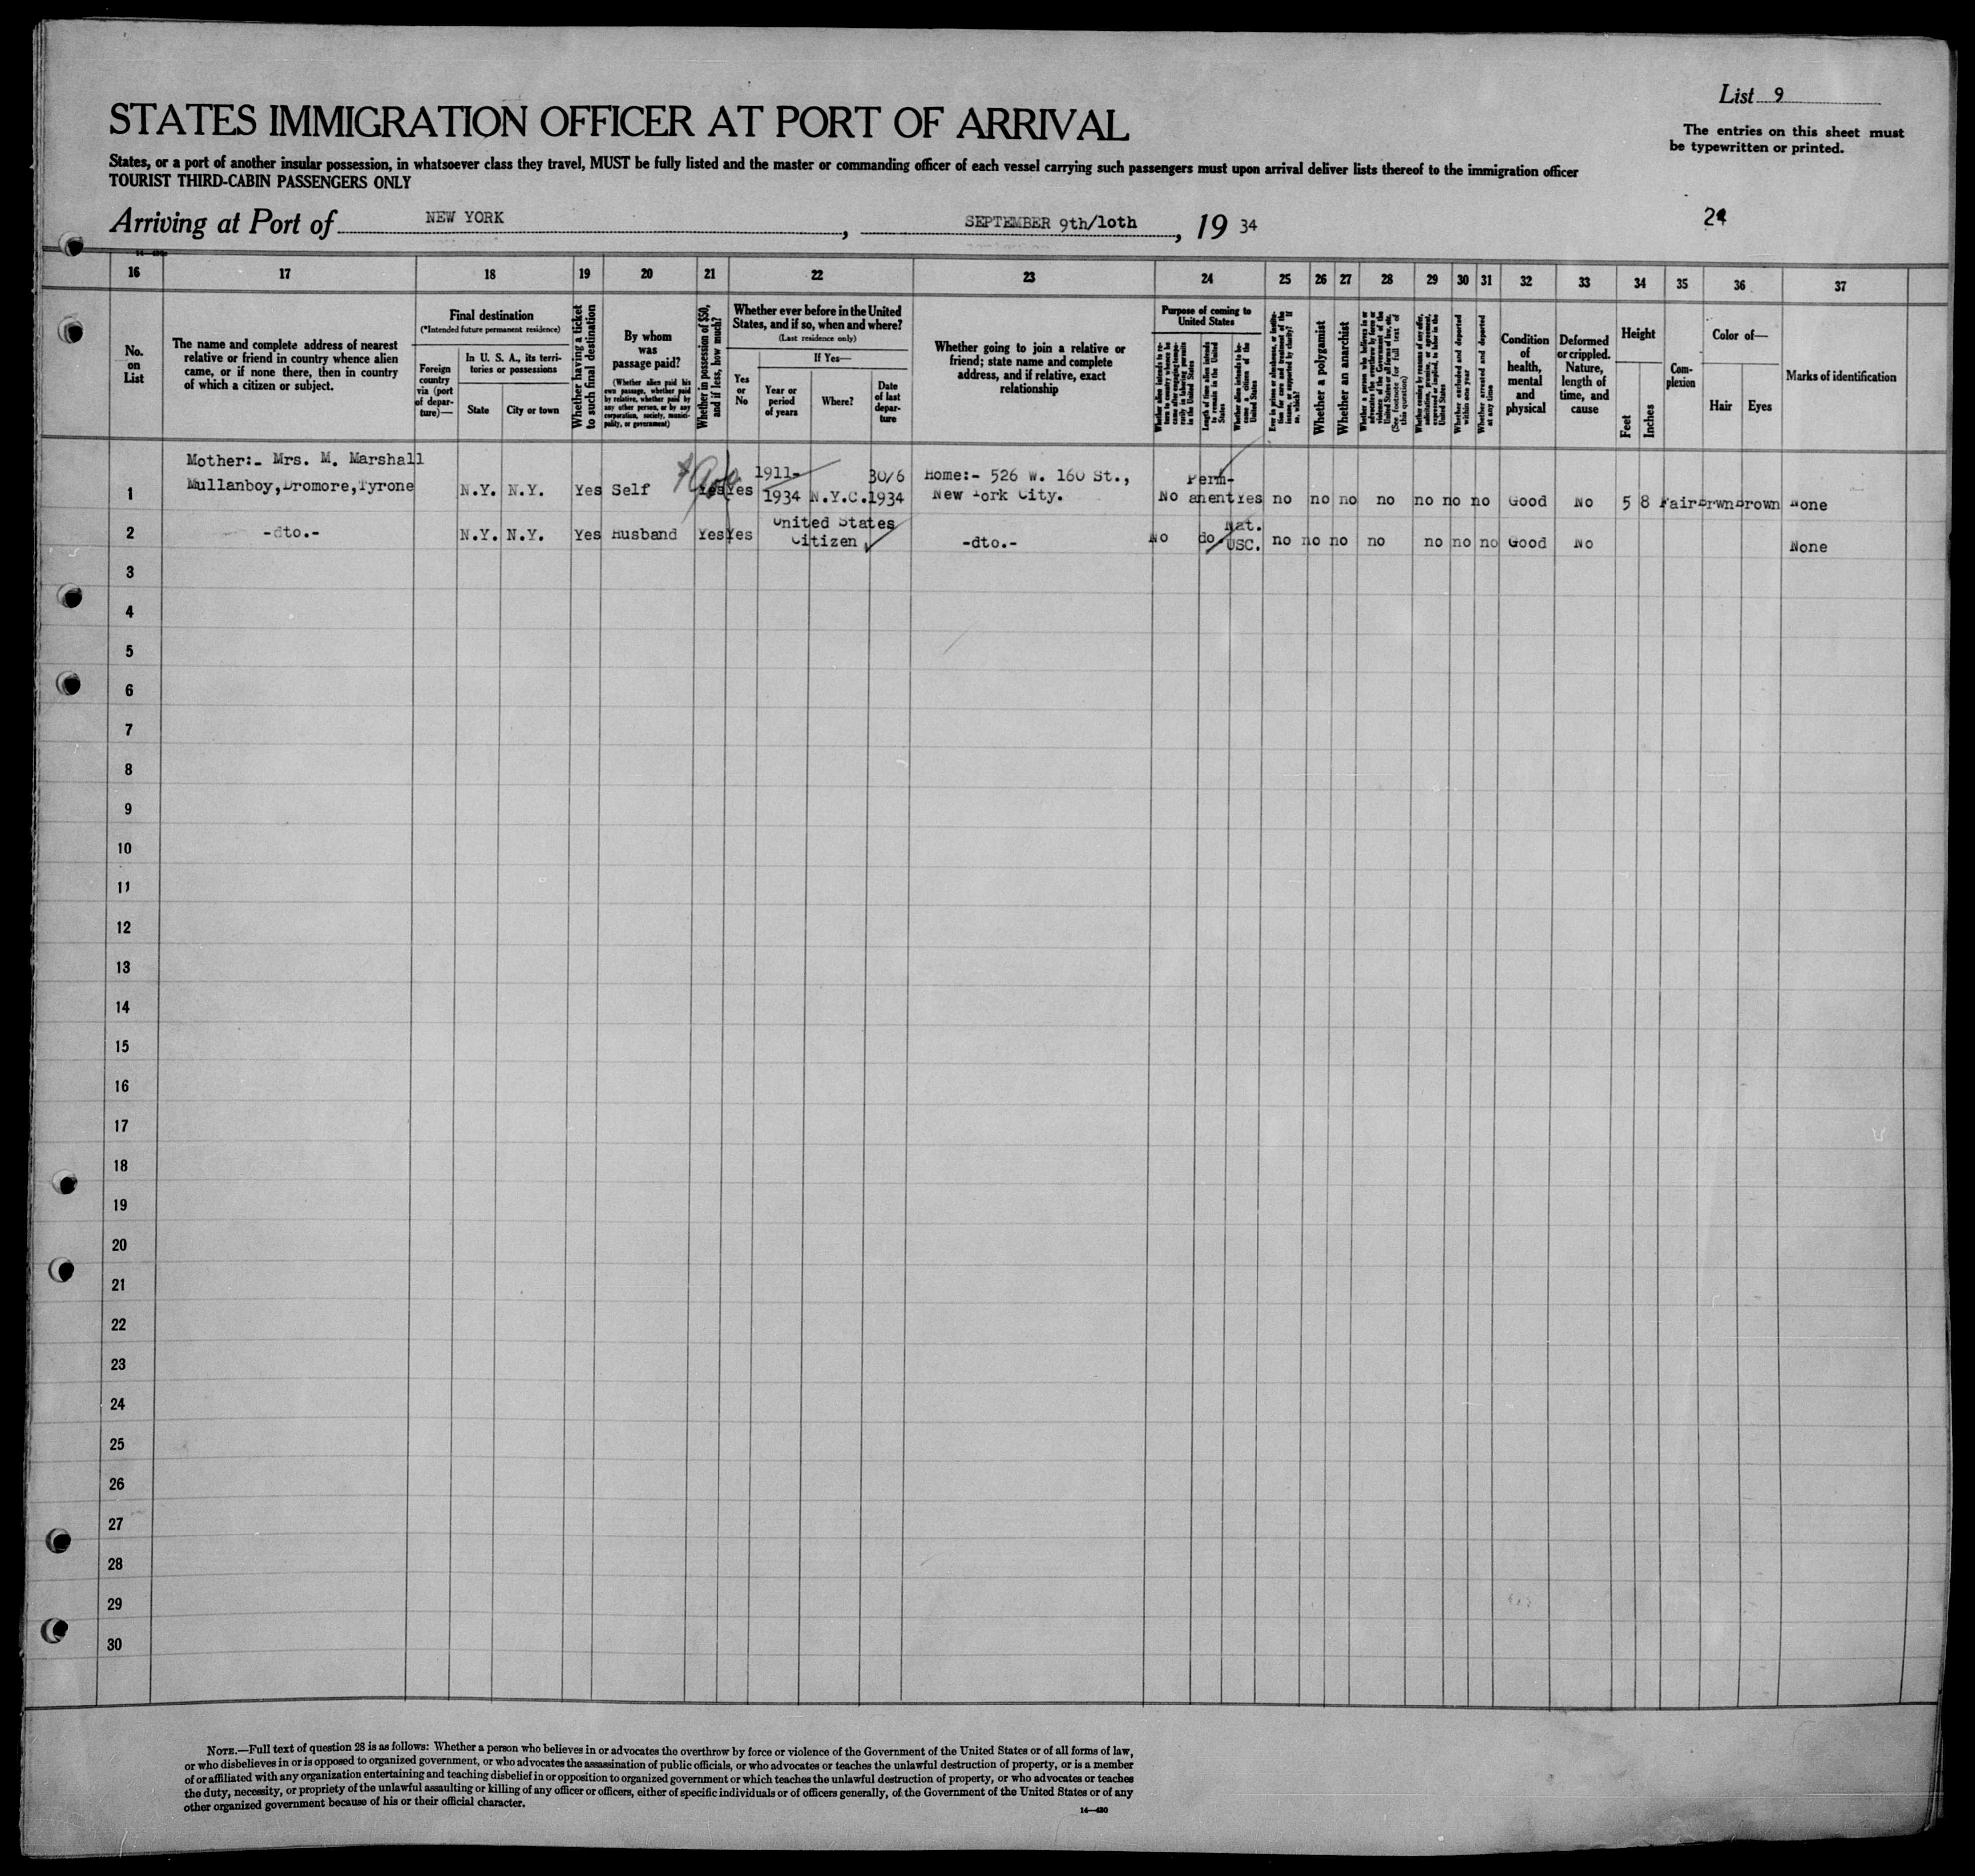 List 9
The entries on this sheet must
be typewritten or printed.
STATES IMMIGRATION OFFICER AT PORT OF ARRIVAL
States, or a port of another insular possession, in whatsoever class they travel, MUST be fully listed and the master or commanding officer of each vessel carrying such passengers must upon arrival deliver lists thereof to the immigration officer
TOURIST THIRD-CABIN PASSENGERS ONLY
Arriving at Port of NEW YORK, SEPTEMBER 9th/10th, 19 34
16 17 18 19 20 21 22 23 24 25 26 27 28 29 30 31 32 33 34 35 36 37
No.
on
List
The name and complete address of nearest
relative or friend in country whence alien
came, or if none there, then in country
of which a citizen or subject.
Final destination
(*Intended future permanent residence)
Foreign
country
via (port
of depar-
ture)—
In U. S. A., its terri-
tories or possessions
State
City or town
Whether having a ticket
to such final destination
By whom
was
passage paid?
(Whether alien paid his
own passage, whether paid
by relative, whether paid by
any other person, or by any
corporation, society, munici-
pality, or government)
Whether in possession of $50,
and if less, how much?
Whether ever before in the United
States, and if so, when and where?
(Last residence only)
Yes
or
No
If Yes—
Year or
period
of years
Where?
Date
of last
depar-
ture
Whether going to join a relative or
friend; state name and complete
address, and if relative, exact
relationship
Purpose of coming to
United States
Length of time alien intends
to remain in the United
States
Whether alien intends to be-
come a citizen of the
United States
Whether a polygamist
Whether an anarchist
Whether excluded and deported
within one year
Whether arrested and deported
at any time
Condition
of
health,
mental
and
physical
Deformed
or crippled.
Nature,
length of
time, and
cause
Height
Feet
Inches
Com-
plexion
Color of—
Hair
Eyes
Marks of identification
Mother:- Mrs. M. Marshall
1 Mullanboy,Dromore,Tyrone N.Y. N.Y. Yes Self Yes Yes 1911-
1934 N.Y.C. 30/6
1934 Home:- 526 W. 160 St.,
New York City. No Perm-
anent Yes no no no no no no no Good No 5 8 Fair Brwn Brown None
2 -dto.- N.Y. N.Y. Yes Husband Yes Yes United States
Citizen -dto.- No do Nat.
USC. no no no no no no no Good No None
3
4
5
6
7
8
9
10
11
12
13
14
15
16
17
18
19
20
21
22
23
24
25
26
27
28
29
30
NOTE.—Full text of question 28 is as follows: Whether a person who believes in or advocates the overthrow by force or violence of the Government of the United States or of all forms of law,
or who disbelieves in or is opposed to organized government, or who advocates the assassination of public officials, or who advocates or teaches the unlawful destruction of property, or is a member
of or affiliated with any organization entertaining and teaching disbelief in or opposition to organized government or which teaches the unlawful destruction of property, or who advocates or teaches
the duty, necessity, or propriety of the unlawful assaulting or killing of any officer or officers, either of specific individuals or of officers generally, of the Government of the United States or of any
other organized government because of his or their official character.
14—430